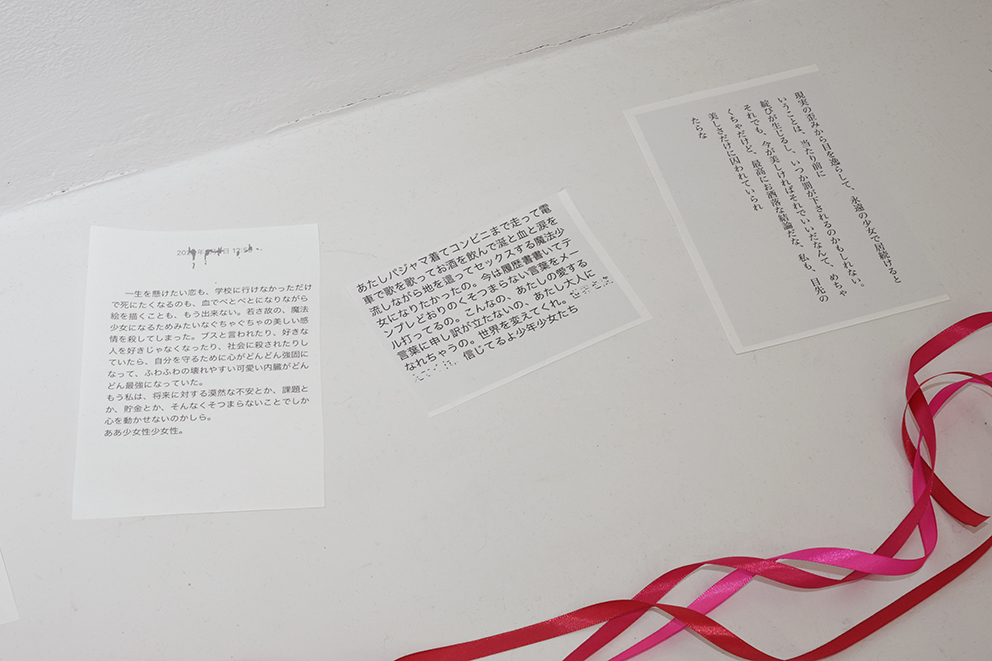 一生を懸けたい恋も、学校に行けなかっただけ
で死にたくなるのも、血でべとべとになりながら
絵を描くことも、もう出来ない。若さ故の、魔法
少女になるためみたいなぐちゃぐちゃの美しい感
情を殺してしまった。ブスと言われたり、好きな
人を好きじゃなくなったり、社会に殺されたりし
ていたら、自分を守るために心がどんどん強固に
なって、ふわふわの壊れやすい可愛い内臓がどん
どん最強になっていた。
もう私は、将来に対する漠然な不安とか、課題と
か、貯金とか、そんなくそつまらないことでしか
心を動かせないのかしら。
ああ少女性少女性。
あたしパジャマ着てコンビニまで走って電
車で歌を歌ってお酒を飲んで涎と血と涙を
流しながら地を這ってセックスする魔法少
女になりたかったの。今は履歴書書いてテ
ンプレどおりのくそつまらない言葉をメー
ル打ってるの。こんなの、あたしの愛する
言葉に申し訳が立たないの、あたし大人に
なれちゃうの。世界を変えてくれ。
信じてるよ少年少女たち
現実の歪みから目を逸らして、永遠の少女で居続けると
いうことは、当たり前に
綻びが生じるし、いつか罰が下されるのかもしれない。
それでも、今が美しければそれでいいだなんて、めちゃ
くちゃだけど、最高にお洒落な結論だな、私も、目先の
美しさだけに囚われていられ
たらな